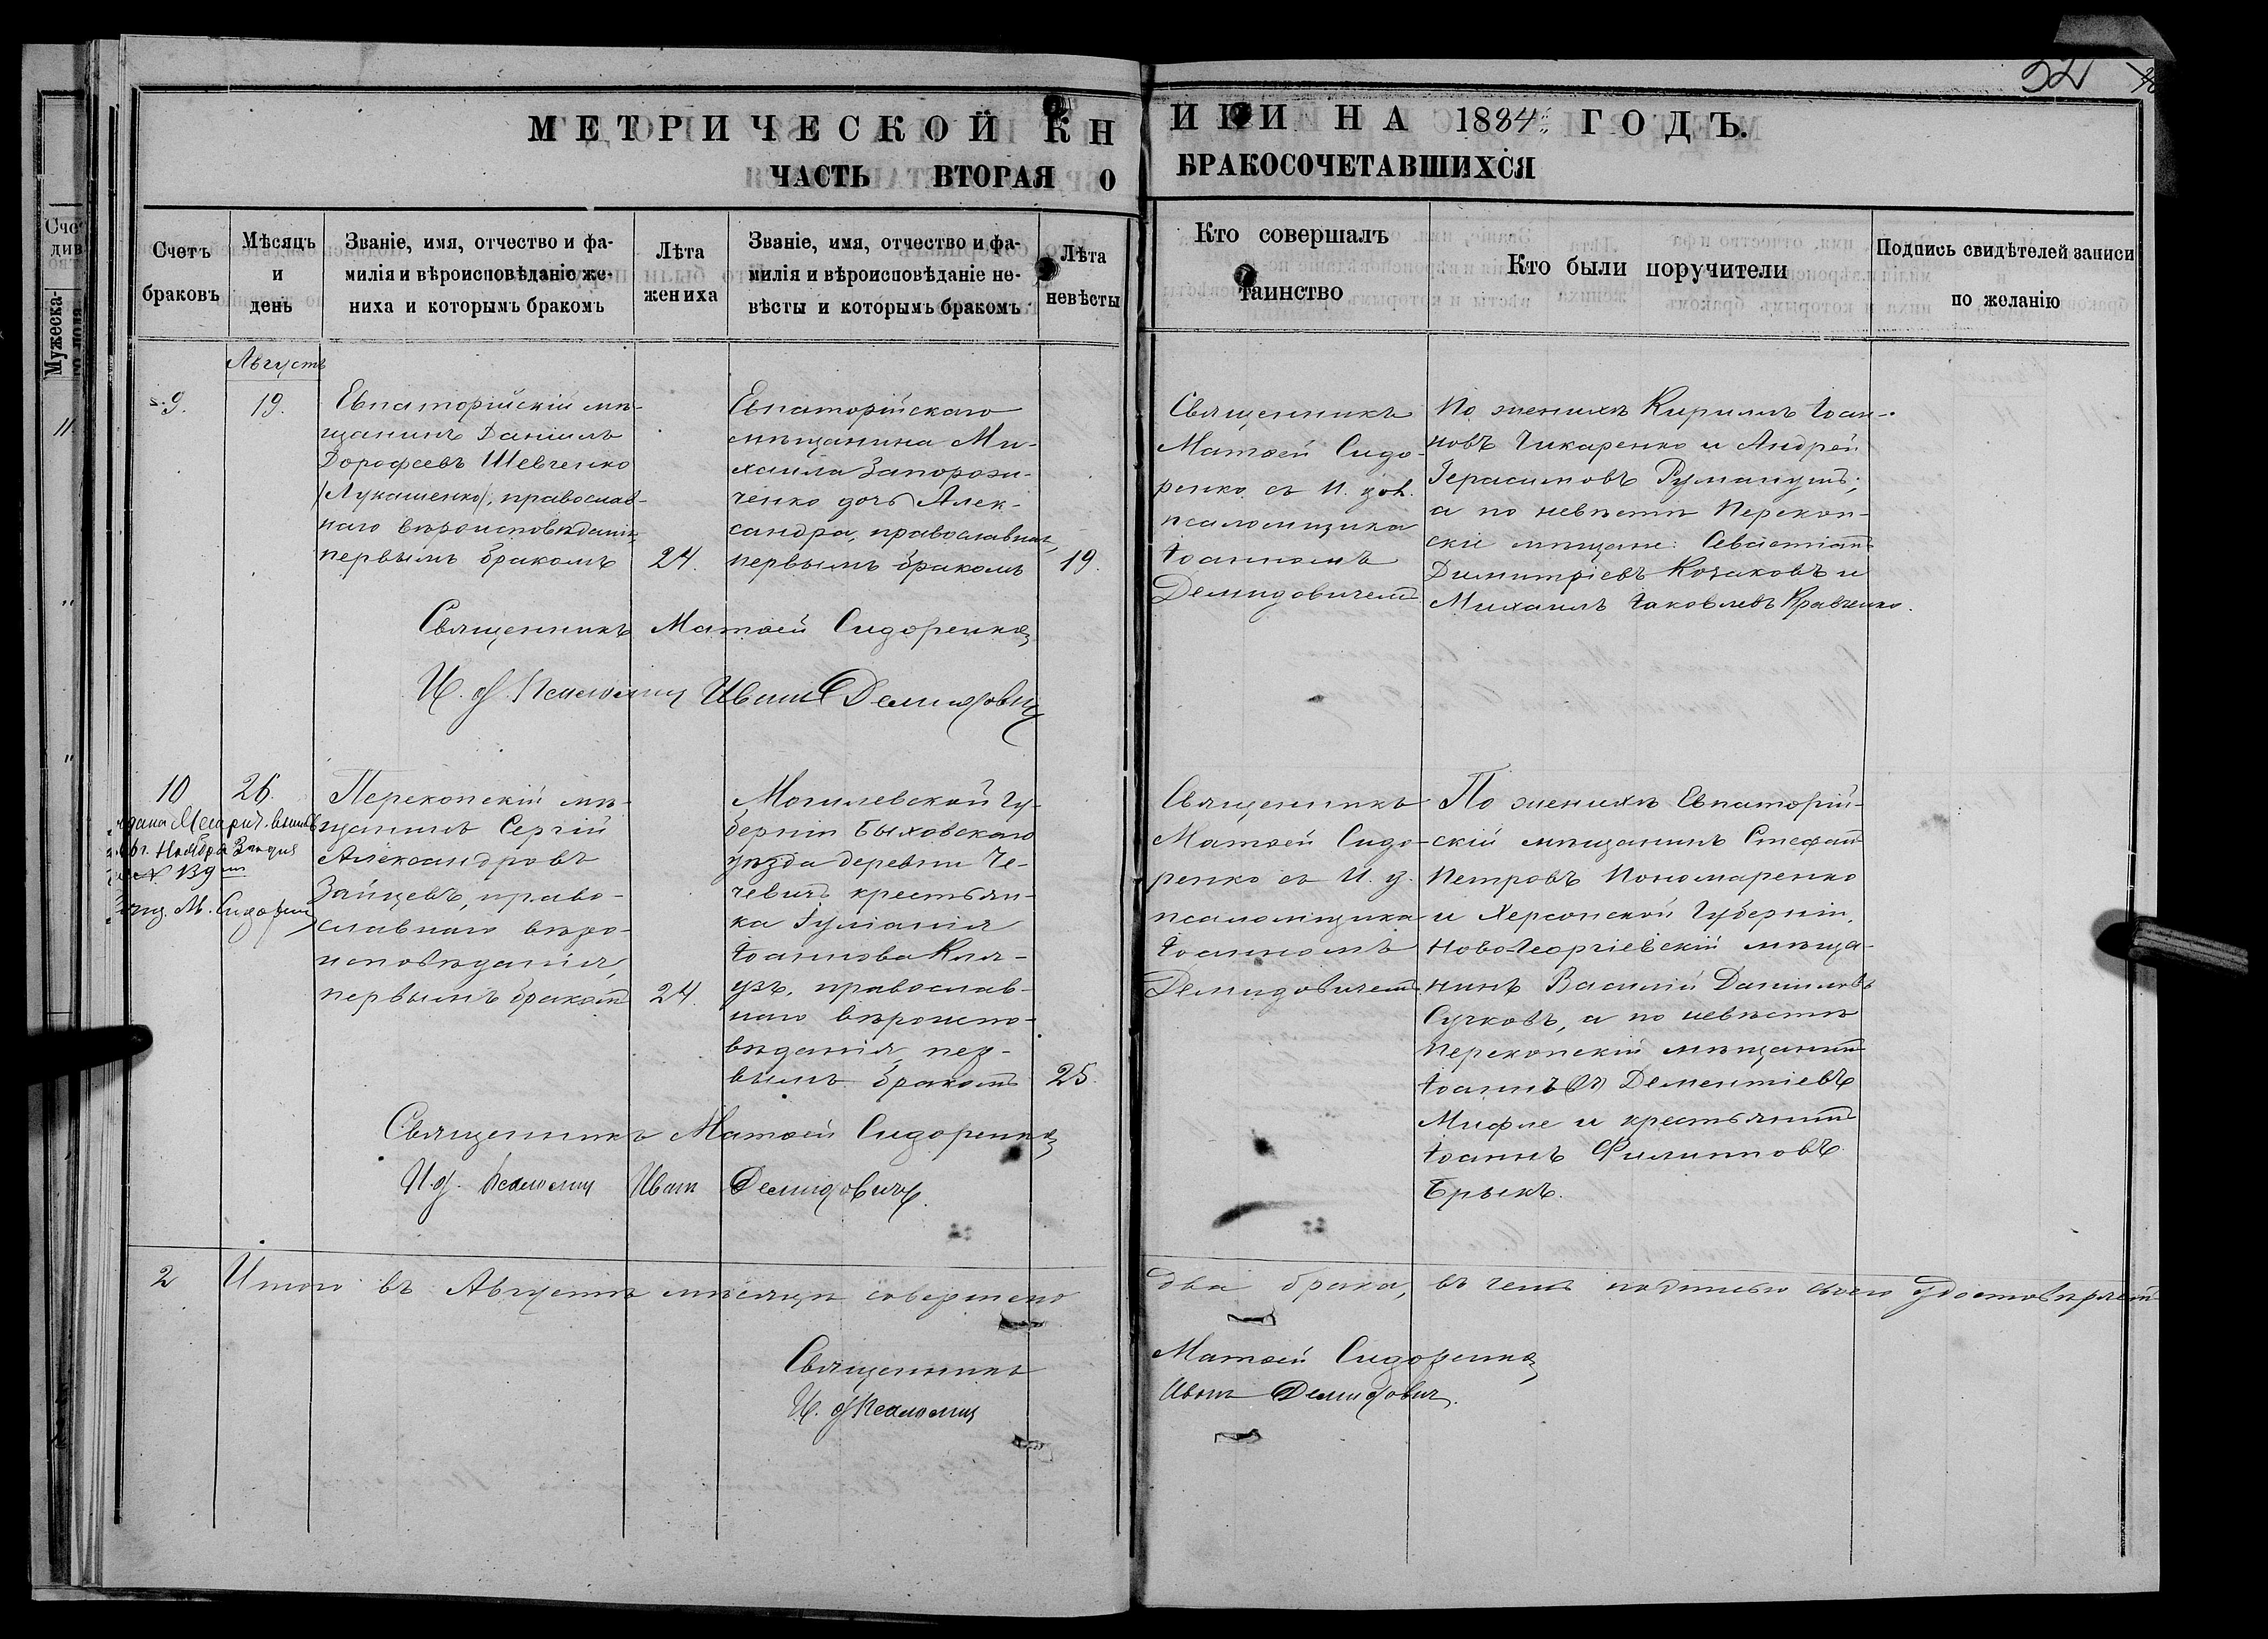 52
МЕТРИЧЕСКОЙ КН
ИГИ НА 1884 ГОДЪ.
ЧАСТЬ ВТОРАЯ О
БРАКОСОЧЕТАВШИХСЯ
Счетъ
браковъ
Мѣсяцъ
и
день
Званіе, имя, отчество и фа-
милія и вѣроисповѣданіе же-
ниха и которымъ бракомъ
Лѣта
жениха
Званіе, имя, отчество и фа-
милія и вѣроисповѣданіе не-
вѣсты и которымъ бракомъ
Лѣта
невѣсты
Кто совершалъ
таинство
Кто были поручители
Подпись свидѣтелей записи
по желанію
Августъ
9.
19.
Евпаторійскій мѣ-
щанинъ Даніилъ
Дорофеевъ Шевченко
/Лукашенко/, православ-
наго вѣроисповѣданія,
первымъ бракомъ
24.
Евпаторійскаго
мѣщанина Ми-
хаила Запорож-
ченко дочь Алек-
сандра, православная,
первымъ бракомъ
19.
Священникъ
Матѳей Сидо-
ренко съ И. дол.
псаломщика
Іоанномъ
Демидовичемъ
По женихѣ Кириллъ Іоан-
новъ Чикаренко и Андрей
Герасимовъ
а по невѣстѣ Перекоп-
скіе мѣщане: Севастіанъ
Димитріевъ Козаковъ и
Михаилъ Іаковлевъ Кравченко.
Священникъ Матѳей Сидоренко
И. д. Псаломщ Иванъ Демидович
10
26.
Ноября
№ 139
Свящ. М. Сидоренко
Перекопскій мѣ-
щанинъ Сергій
Александровъ
Зайцевъ, право-
славнаго вѣро-
исповѣданія,
первымъ бракомъ
24.
Могилевской Гу-
берніи Быховскаго
уѣзда деревни Че-
чевичъ крестьян-
ка Іуліанія
Іоаннова Кля-
узъ, православ-
наго вѣроиспо-
вѣданія, пер-
вымъ бракомъ
25.
Священникъ
Матѳей Сидо-
ренко съ И. д.
псаломщика
Іоанномъ
Демидовичемъ.
По женихѣ Евпаторій-
скій мѣщанинъ Стефанъ
Петровъ Пономаренко
и Херсонской Губерніи,
Новогеоргіевскій мѣща-
нинъ Василій Даніиловъ
Сучковъ, а по невѣстѣ
Перекопскій мѣщанинъ
Іоаннъ Дементіевъ
и крестьянинъ
Іоаннъ Филипповъ
Брыкъ.
Священникъ Матѳей Сидоренко
И. д. Псаломщ Иванъ Демидовичъ.
2
Итого въ Августѣ мѣсяцѣ совершено
два брака, въ чемъ подписью своею удостовѣряемъ
Священникъ
Матѳей Сидоренко
И. д Псаломщ
Иванъ Демидович.